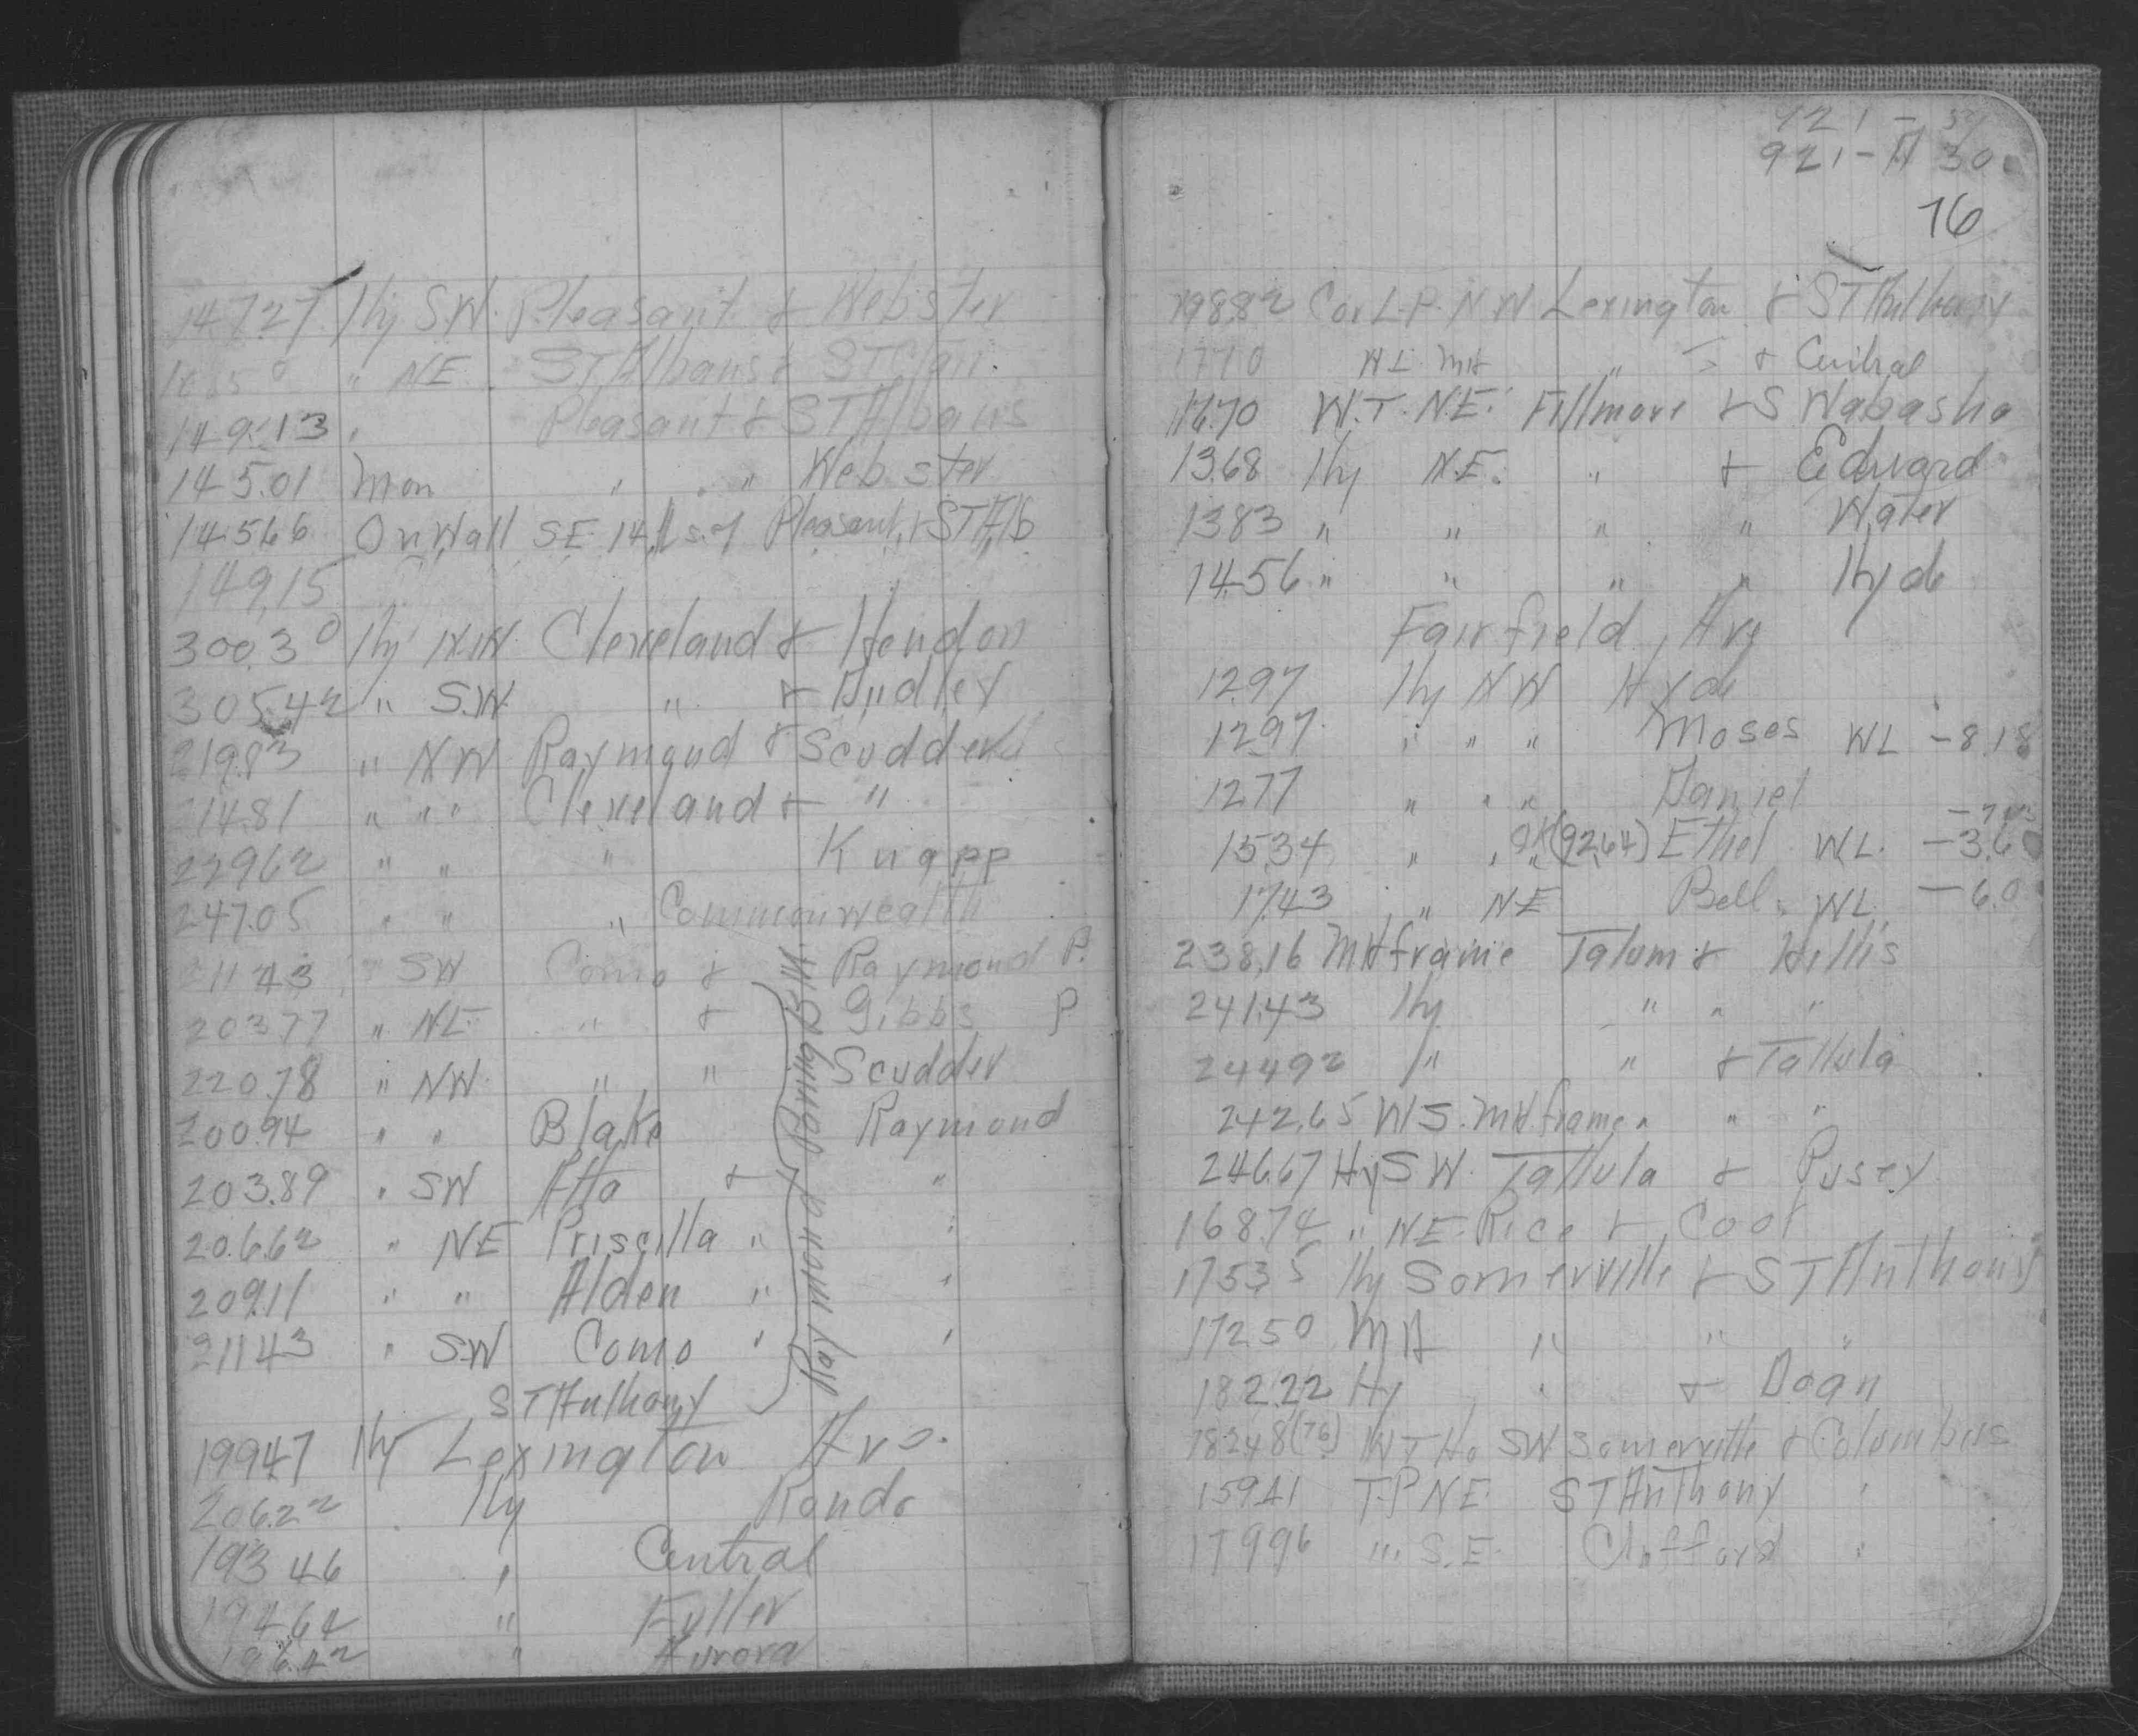 147.27 Hy S.W. Pleasant & Webster
" NE. ST Albans & ST Clair.
149.13 " Pleasant & ST Albans
145.01 Mon " " Webster
145.66 On Wall SE 14 s. of Pleasant & ST Alb
149.15
300.30 Hy N.W. Cleveland & Hendon
305.42 " S.W. " & Dudley
219.83 " NW Raymond & Scudder
214.81 " " " Cleveland & "
229.62 " " " Knapp
247.05 " " " Commonwealth
211.43 " SW Como & Raymond P.
203.77 " NE " & Gibbs P
220.78 " NW. " " Scudder
200.94 " " Blake Raymond
203.89 " SW Alta & "
206.62 " NE Priscilla " "
209.11 " " Alden " "
211.43 " S.W Como " "
ST Anthony
199.47 Hy Lexington Ave.
206.22 Hy Rondo
193.46 " Central
194.64 " Fuller
196.42 " Aurora
Raymond
921-A 30
76
198.82 Cor L.P. N W Lexington & ST Anthony
17.10 W.L. MH " & Central
16.70 W.T. N.E. Fillmore & S Wabasha
13.68 Hy N.E. " & Edward
13.83 " " " " Water
14.56 " " " " Hyde
Fairfield Ave
12.97 Hy NW Hyde
12.97 " " " Moses WL -8.18
12.77 " " " Daniel
15.34 " " " OK (92.64) Ethel WL. -3.6
17.43 " NE Bell WL. -6.0
238.16 MH frame Tatum & Hillis
241.43 Hy " " "
244.92 " " & Tallula
242.65 WS. MH. frame " " "
246.67 Hy S W. Tallula & Pusey
168.74 " NE. Rice & Cook
175.35 Hy Somerville & ST Anthony
172.50 MH " " "
182.22 Hy " & Doan
182.48 (76) W T Ho SW Somerville & Columbus
159.41 T.P NE. ST Anthony "
179.96 " S.E. Clifford "